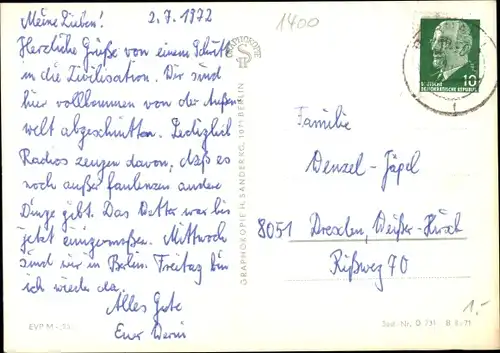 Meine Lieben! 2.7.1972
Herzliche Grüße von einem Schritt
in die Zivilisation. Wir sind
hier vollkommen von der Außen
welt abgeschnitten. Lediglich
Radios zeugen davon, daß es
noch außer faulenzen andere
Dinge gibt. Das Wetter war bis
jetzt einigermaßen. Mittwoch
sind wir in Berlin. Freitag bin
ich wieder da.
Alles Gute
Euer
EVP M
1400
GRAPHOKOPIE
GRAPHOKOPIE H. SANDER KG, 1071 BERLIN
10
DEUTSCHE
DEMOKRATISCHE REPUBLIK
Familie
Denzel-Jäpel
8051 Dresden, Weißer-Hirsch
Rißweg 70
1.-
Best.-Nr. D 731 B 8/71